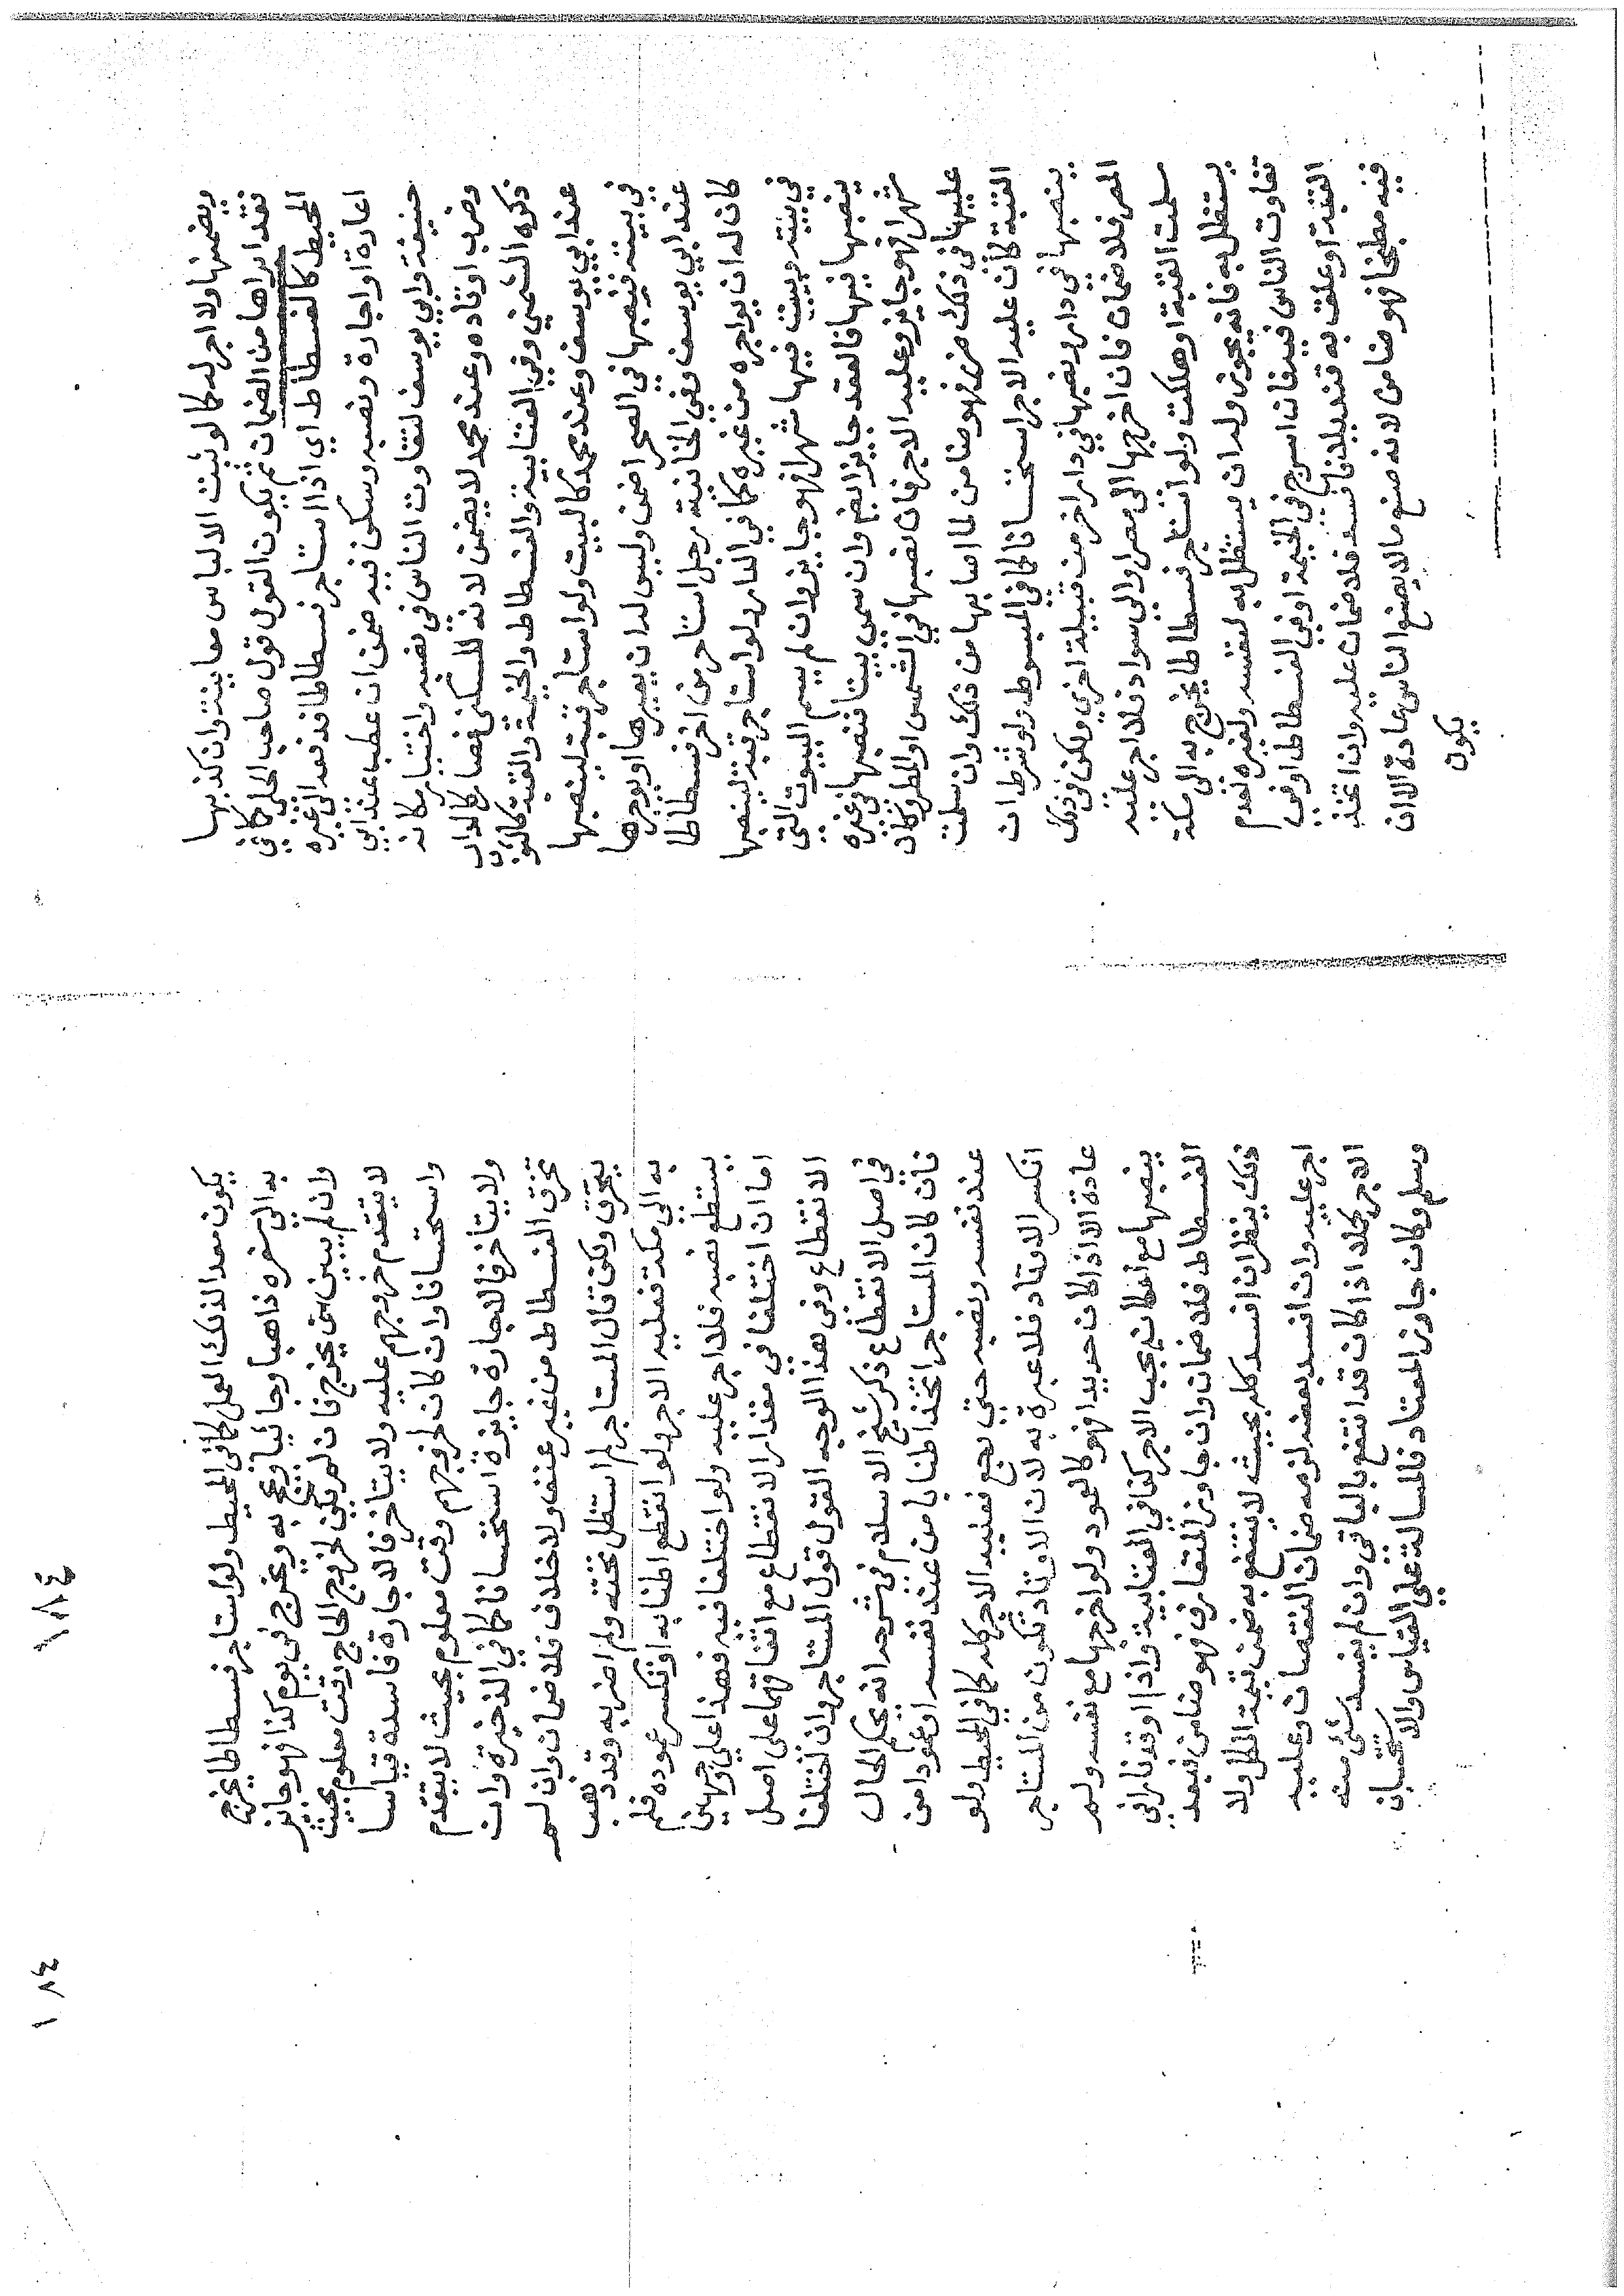 ويضمنها ولا اجر له كما لو ثبت الالباس معاينة وان كذبها
فقد ابراها من الضمان ثم يكون القول قول صاحب الحلي كما في
المحيط كالفسطاط اي اذا استاجر فسطاطا فدفعه الي غيره
اعارة او اجارة ونصبه وسكن فيه ضمن ان عطب عند ابي
حنيفة وابي يوسف لتفاوت الناس في نصبه واختيار مكانه
وضرب اوتاده وعند محمد لا يضمن لانه للسكني فصار كالدار
ذكره الشمني وفي العتابية والفسطاط والخيمة والقبة كالثوب
عند ابي يوسف وعند محمد كالبيت ولو استاجر قبة لينصبها
في بيته فنصبها في الصحرا ضمن وليس له ان يعيرها او يوجرها
عند ابي يوسف وفي الخانية رجل استاجر من اخر فسطاطا
كان له ان يواجره من غيره كما في الدار ولو استاجر قبة لينصبها
في بيته ويبيت فيها شهرا فهو جايز وان لم يسم البيوت التي
ينصبها فيها فالعقد جايز ايضا وان سمي بيتا فنصبها في غيره
شهرا فهو جايز وعليه الاجر فان نصبها في الشمس او المطر وكان
عليها في ذلك ضرر فهو ضامن لما اصابها من ذلك وان سلمت
القبة كان عليه الاجر استحسانا كما في المبسوط ولو شرط ان
ينصبها في دار ونصبها في دار اخر من قبيلة اخري ولكن في ذلك
المصر فلا ضمان فان اخرجها الي مصر او الي سواد فلا اجر عليه
سلمت القبة او هلكت ولو استاجر فسطاطا يخرج به الي مكة
يستظل به فانه يجوز وله ان يستظل به لنفسه ولغيره لعدم
تفاوت الناس فيه فان اسرج في الخيمة او في الفسطاط او في
القبة او علق به قنديلا فافسد فلا ضمان عليه وان اتخذ
فيه مطبخا فهو ضامن لانه صنع ما لا يصنع الناس عادة الا ان
يكون
١٨٤
١٨٤
يكون معدا لذلك العمل كما في المحيط ولو استاجر فسطاطا يخرج
به الي سفره ذاهبا وجائيا ويحج به ويخرج في يوم كذا فهو جايز
وان لم يبين متي يخرج فان لم يكن لخروج الحاج وقت معلوم بحيث
لا يتقدم خروجهم عليه ولا يتاخر فالاجارة فاسدة قياسا
واستحسانا وان كان لخروجهم وقت معلوم بحيث لا يتقدم
ولا يتاخر فالاجارة جايزة استحسانا كما في الذخيرة وان
تخرق الفسطاط من غير عنف ولا خلاف فلا ضمان وان لم
يتخرق ولكن قال المستاجر لم استظل تحته ولم اضربه وقد ذهب
به الي مكة فعليه الاجر ولو انقطع اطنابه او انكسر عموده فلم
يستطع نصبه فلا اجر عليه ولو اختلفا فيه فهذا علي وجهين
اما ان اختلفا في مقدار الانقطاع مع اتفاقهما علي اصل
الانقطاع وفي هذا الوجه القول قول المستاجر وان اختلفا
في اصل الانقطاع ذكر شيخ الاسلام في شرحه انه يحكم الحال
فان كان المستاجر اتخذ اطنابا من عند نفسه او عمودا من
عند نفسه ونصبه حتي رجع فعليه الاجر كله كما في المحيط ولو
انكسر الاوتاد فلا عبرة به لان الاوتاد تكون من المستاجر
عادة الا اذا كان حديدا فهو كالعمود ولو اخرجها مع نفسه ولم
ينصبها مع امكانه يجب الاجر كما في العتابية واذا اوقد نارا في
الفسطاط فلا ضمان وان جاوز المتعارف فهو ضامن فبعد
ذلك ينظر ان افسد كله بحيث لا ينتفع به ضمن قيمة الكل ولا
اجر عليه وان افسد بعضه لزمه ضمان النقصان وعليه
الاجر كملا اذا كان قد انتفع بالباقي وان لم يفسد شئ منه
وسلم وكان جاوز المعتاد فالمسالة علي القياس والاستحسان